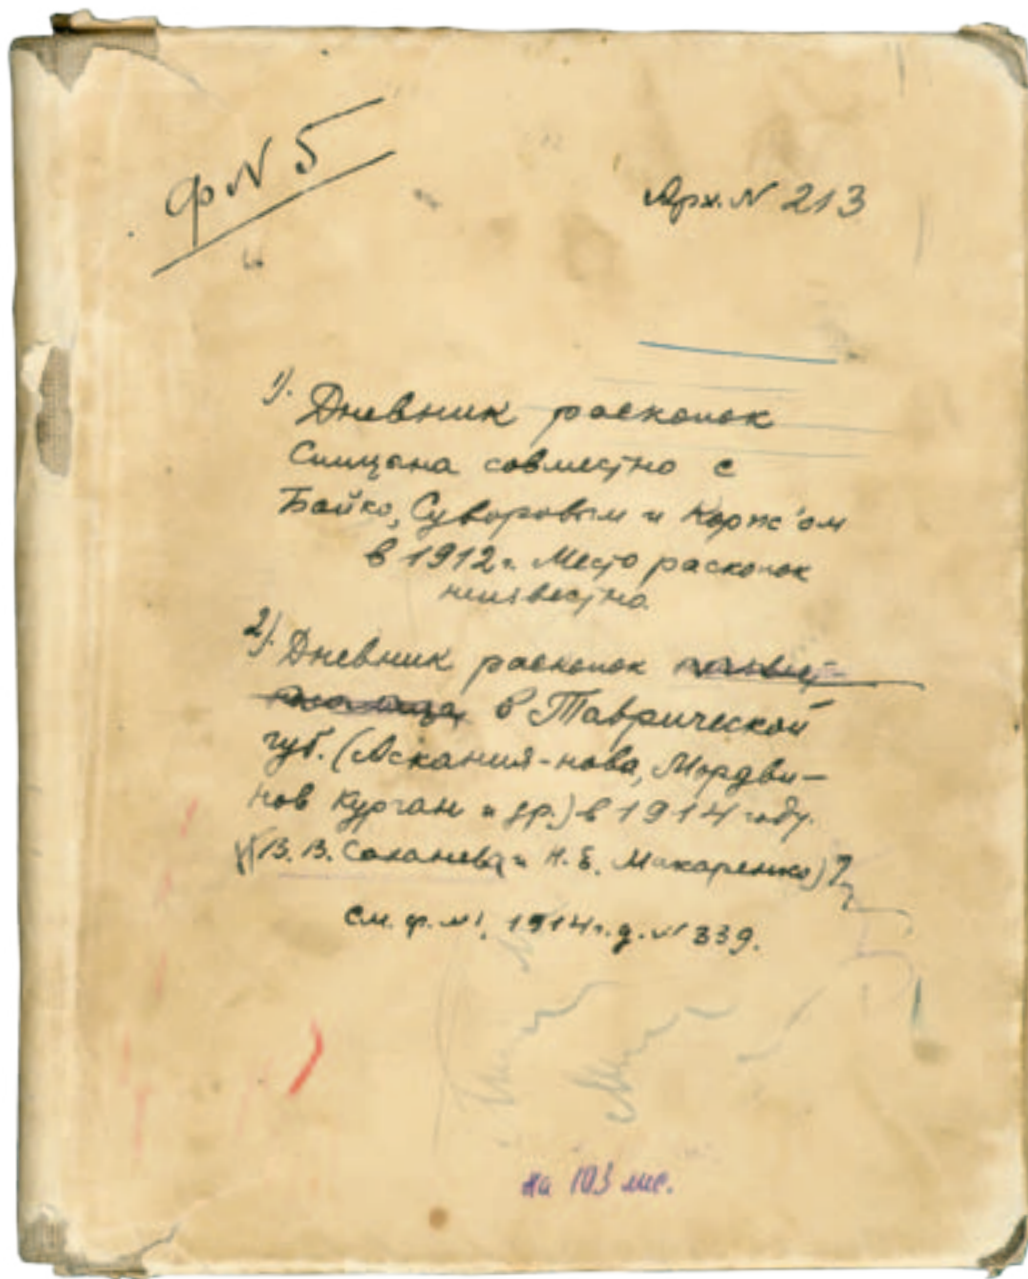 Ф N 5
Арх. N 213
1). Дневник раскопок
Спицына совместно с
Бойко, Суворовым и Корж'ом
в 1912 г. Место раскопок
неизвестно.
2). Дневник раскопок
в Таврической
губ. (Аскания-нова, Мордви-
нов курган и др.) в 1914 году.
(В. В. Саханева и Н. Е. Макаренко)?
см. ф. N 1, 1914 г. д. N 339.
на 103 лис.